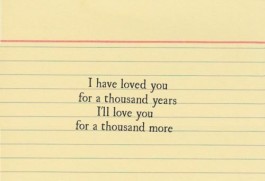 I have loved you
for a thousand years
I'll love you
for a thousand more